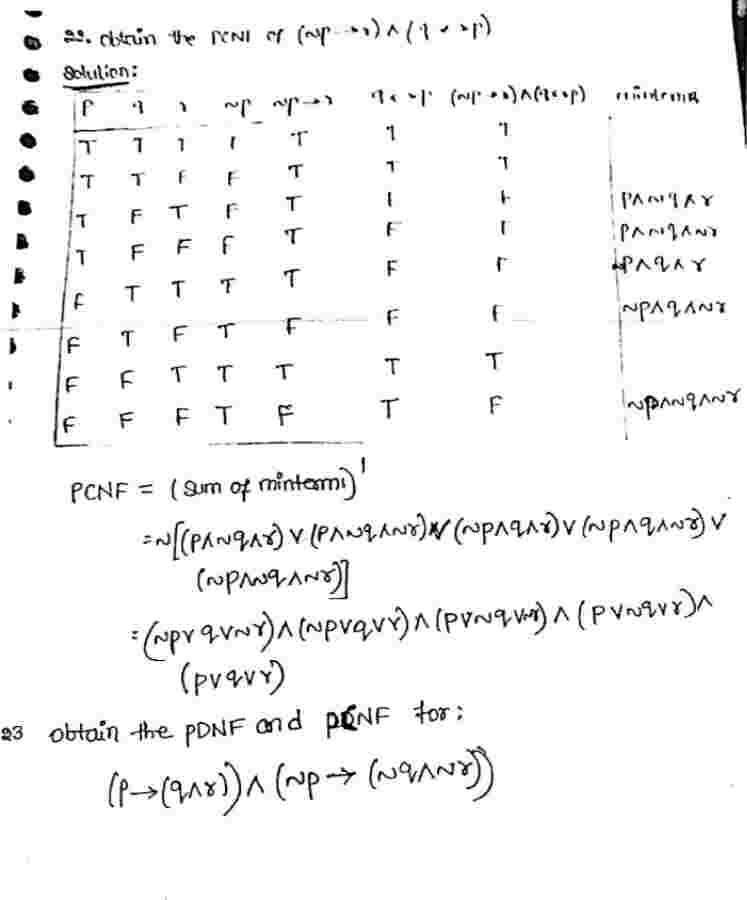 22. obtain the PCNF of (~p → r) ∧ (q ↔ p)
Solution:
P q r ~p ~p→r q↔p (~p→r)∧(q↔p) minterms
T T T F T T T
T T F F T T T
T F T F T F F P∧~q∧r
T F F F T F F P∧~q∧~r
F T T T T F F ~P∧q∧r
F T F T F F F ~P∧q∧~r
F F T T T T T
F F F T F T F ~P∧~q∧~r
PCNF = (sum of minterms)'
= ~[(P∧~q∧r) ∨ (P∧~q∧~r) ∨ (~P∧q∧r) ∨ (~P∧q∧~r) ∨
(~P∧~q∧~r)]
= (~P∨q∨~r) ∧ (~P∨q∨r) ∧ (P∨~q∨~r) ∧ (P∨~q∨r) ∧
(P∨q∨r)
23 obtain the PDNF and PCNF for:
(P→(q∧r)) ∧ (~p → (~q∧~r))